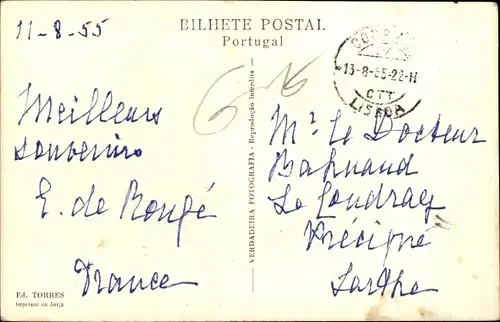 11-8-55
BILHETE POSTAL
Portugal
13-8-55-22-H
CTT
LISBOA
Meilleurs
souvenirs
E. de Rougé
France
VERDADEIRA FOTOGRAFIA - Reprodução interdita
Mr Le Docteur
Le Coudray
Précigné
Sarthe
Ed. TORRES
Impresso na Suiça